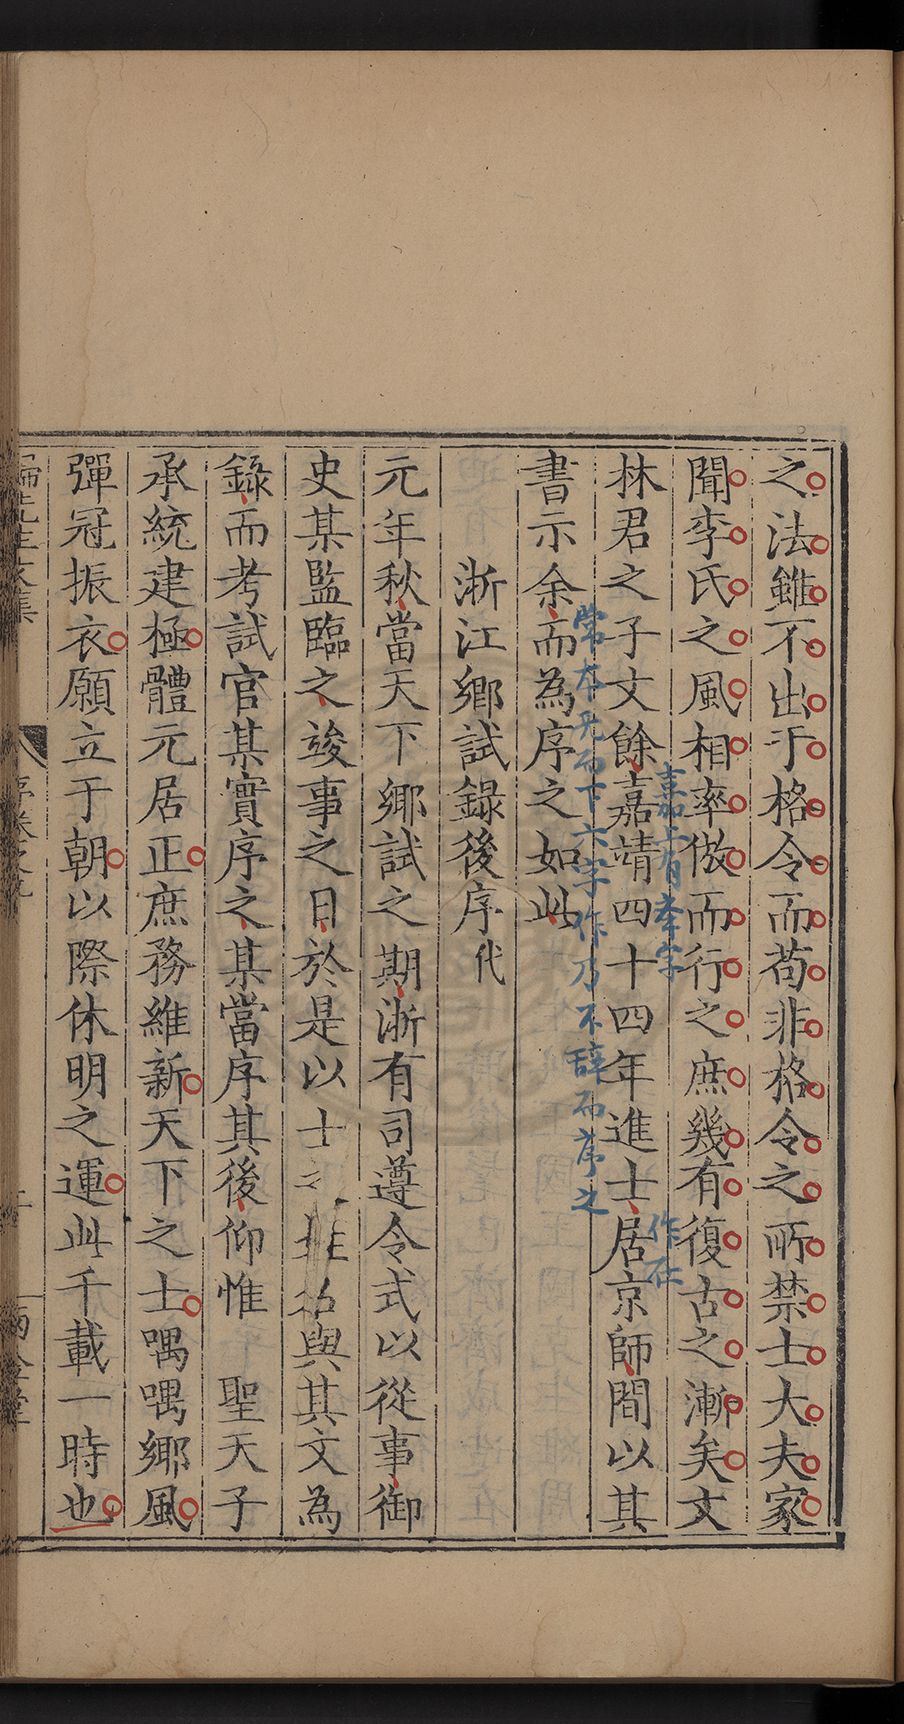 之法雖不出于格令而苟非格令之所禁士大夫家
聞李氏之風相率倣而行之庶幾有復古之漸矣文
嘉上有奉字
作在
林君之子文餘嘉靖四十四年進士居京師間以其
常本無而下六字作乃不辞而序之
書示余而為序之如此
浙江鄉試録後序代
元年秋當天下鄉試之期浙有司遵令式以從事御
史某監臨之竣事之日於是以士與其文為
錄而考試官某實序之某當序其後仰惟 聖天子
承統建極體元居正庶務維新天下之士喁喁鄉風
彈冠振衣願立于朝以際休明之運此千載一時也